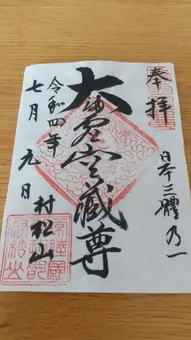 奉拝
日本三體乃一
大満虚空蔵尊
村松山
令和四年
七月九日